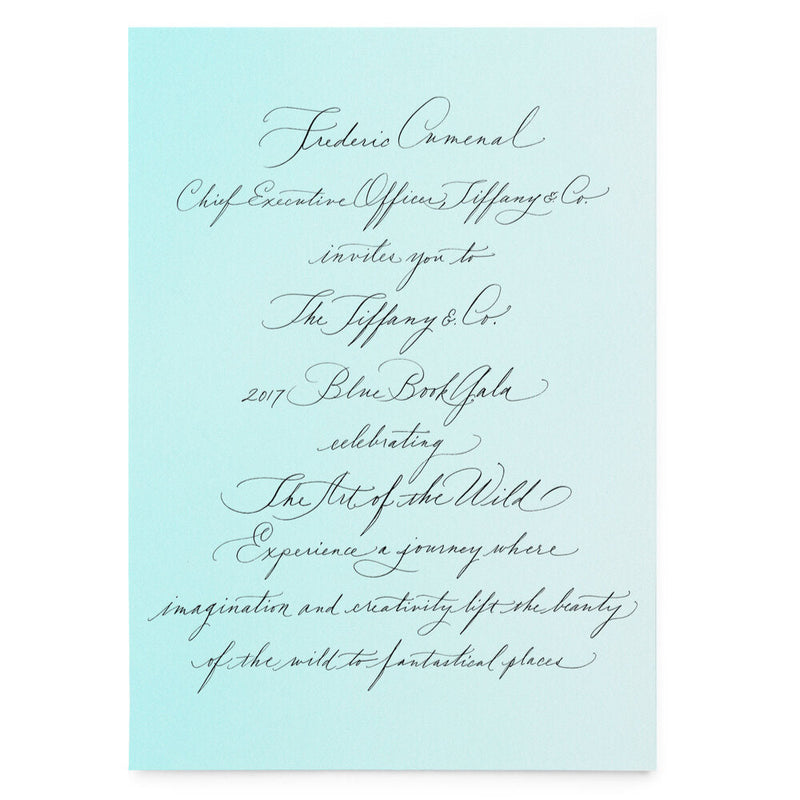 Frederic Cumenal
Chief Executive Officer, Tiffany & Co.
invites you to
The Tiffany & Co.
2017 Blue Book Gala
celebrating
The Art of the Wild
Experience a journey where
imagination and creativity lift the beauty
of the wild to fantastical places